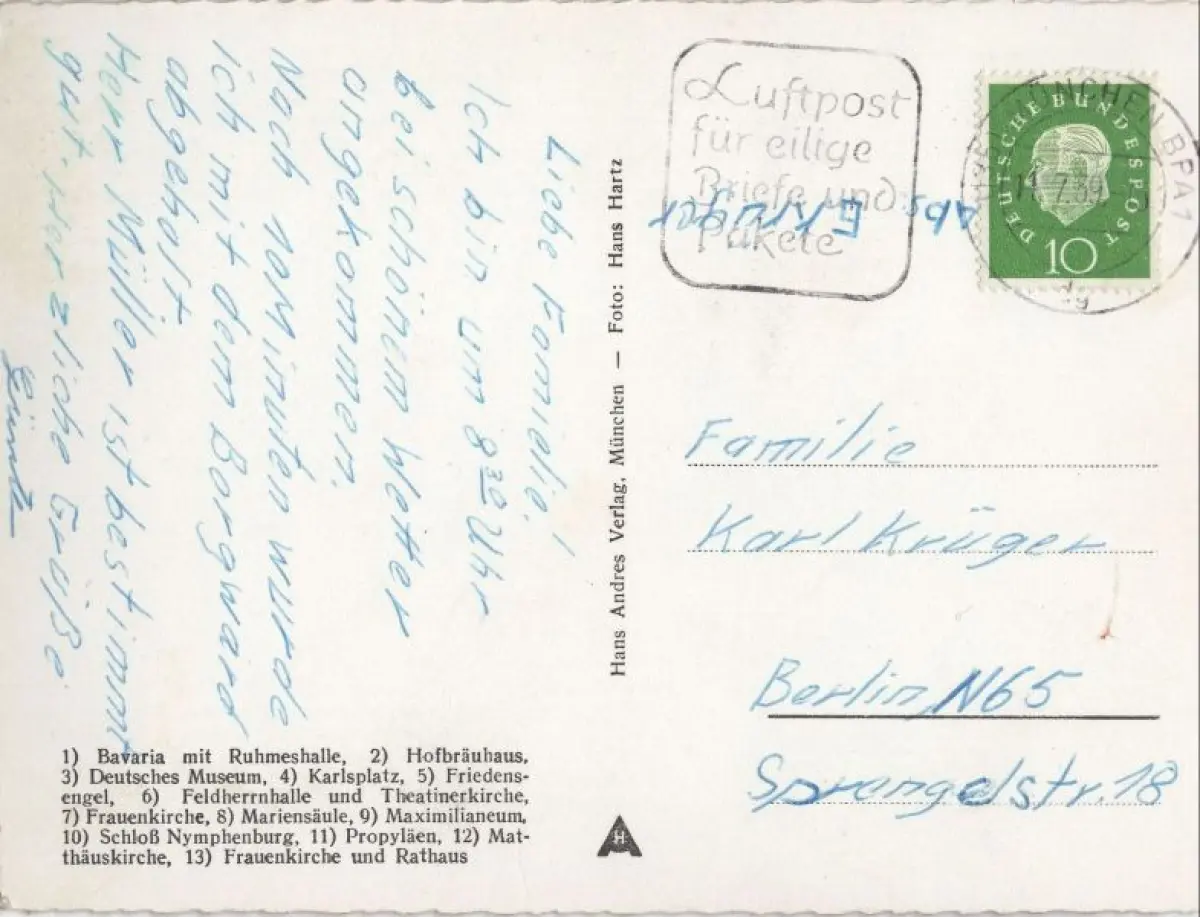 Liebe Familie!
Ich bin um 8 30 Uhr
bei schönem Wetter
angekommen.
Nach 10 Minuten wurde
ich mit dem Borgward
abgeholt
Herr Müller ist bestimmt
gut. Herzliche Grüße
Günter
1) Bavaria mit Ruhmeshalle, 2) Hofbräuhaus,
3) Deutsches Museum, 4) Karlsplatz, 5) Friedens-
engel, 6) Feldherrnhalle und Theatinerkirche,
7) Frauenkirche, 8) Mariensäule, 9) Maximilianeum,
10) Schloß Nymphenburg, 11) Propyläen, 12) Mat-
thäuskirche, 13) Frauenkirche und Rathaus
Hans Andres Verlag, München — Foto: Hans Hartz
Luftpost
für eilige
Briefe und
Pakete
Abs.
DEUTSCHE BUNDESPOST
10
MÜNCHEN BPA 1
Familie
Karl Krüger
Berlin N65
Sprengelstr. 18
AH